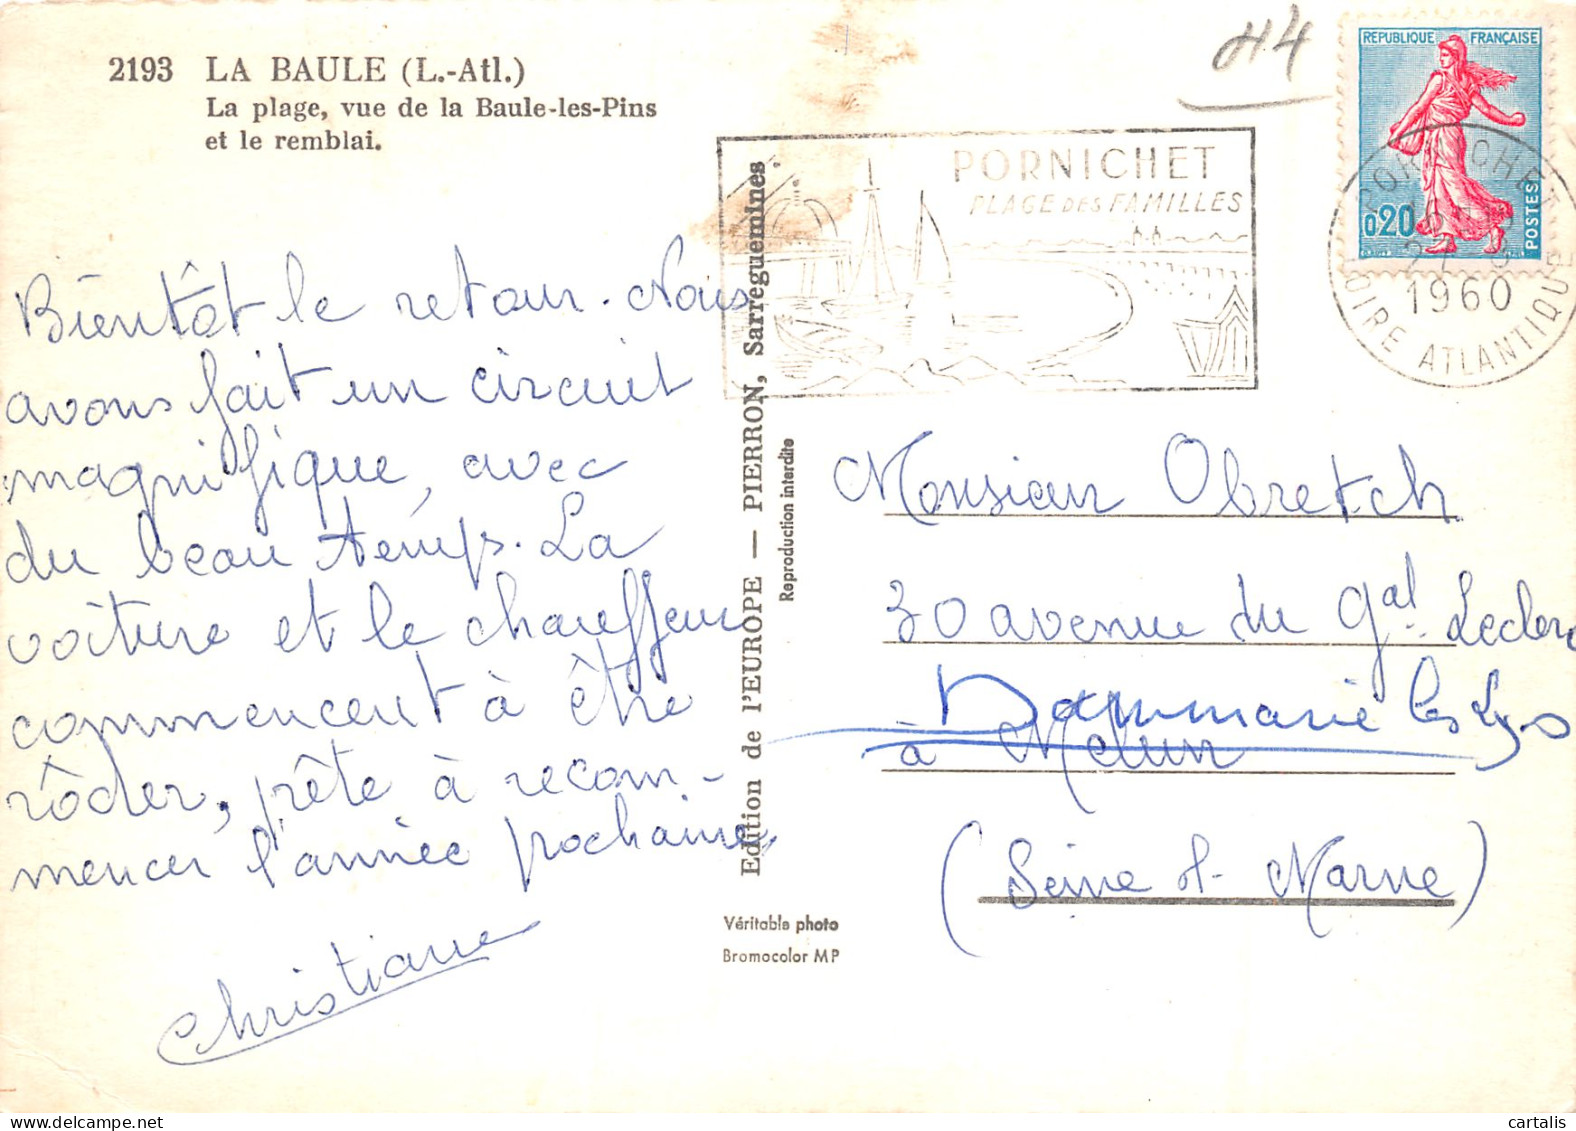 2193 LA BAULE (L.-Atl.)
La plage, vue de la Baule-les-Pins
et le remblai.
Bientôt le retour. Nous
avons fait un circuit
magnifique, avec
du beau temps. La
voiture et le chauffeur
commencent à être
rôder, prête à recom-
mencer l'année prochaine,
Christiane
Edition de l'EUROPE — PIERRON, Sarreguemines.
Reproduction interdite
Véritable photo
Bromocolor MP
PORNICHET
PLAGE DES FAMILLES
H4
REPUBLIQUE FRANÇAISE
0,20
POSTES
PORNICHET
1960
LOIRE ATLANTIQUE
Monsieur Obretch
30 avenue du Gal. Leclerc
Dammarie les Lys
à Melun
(Seine et Marne)
cartalis